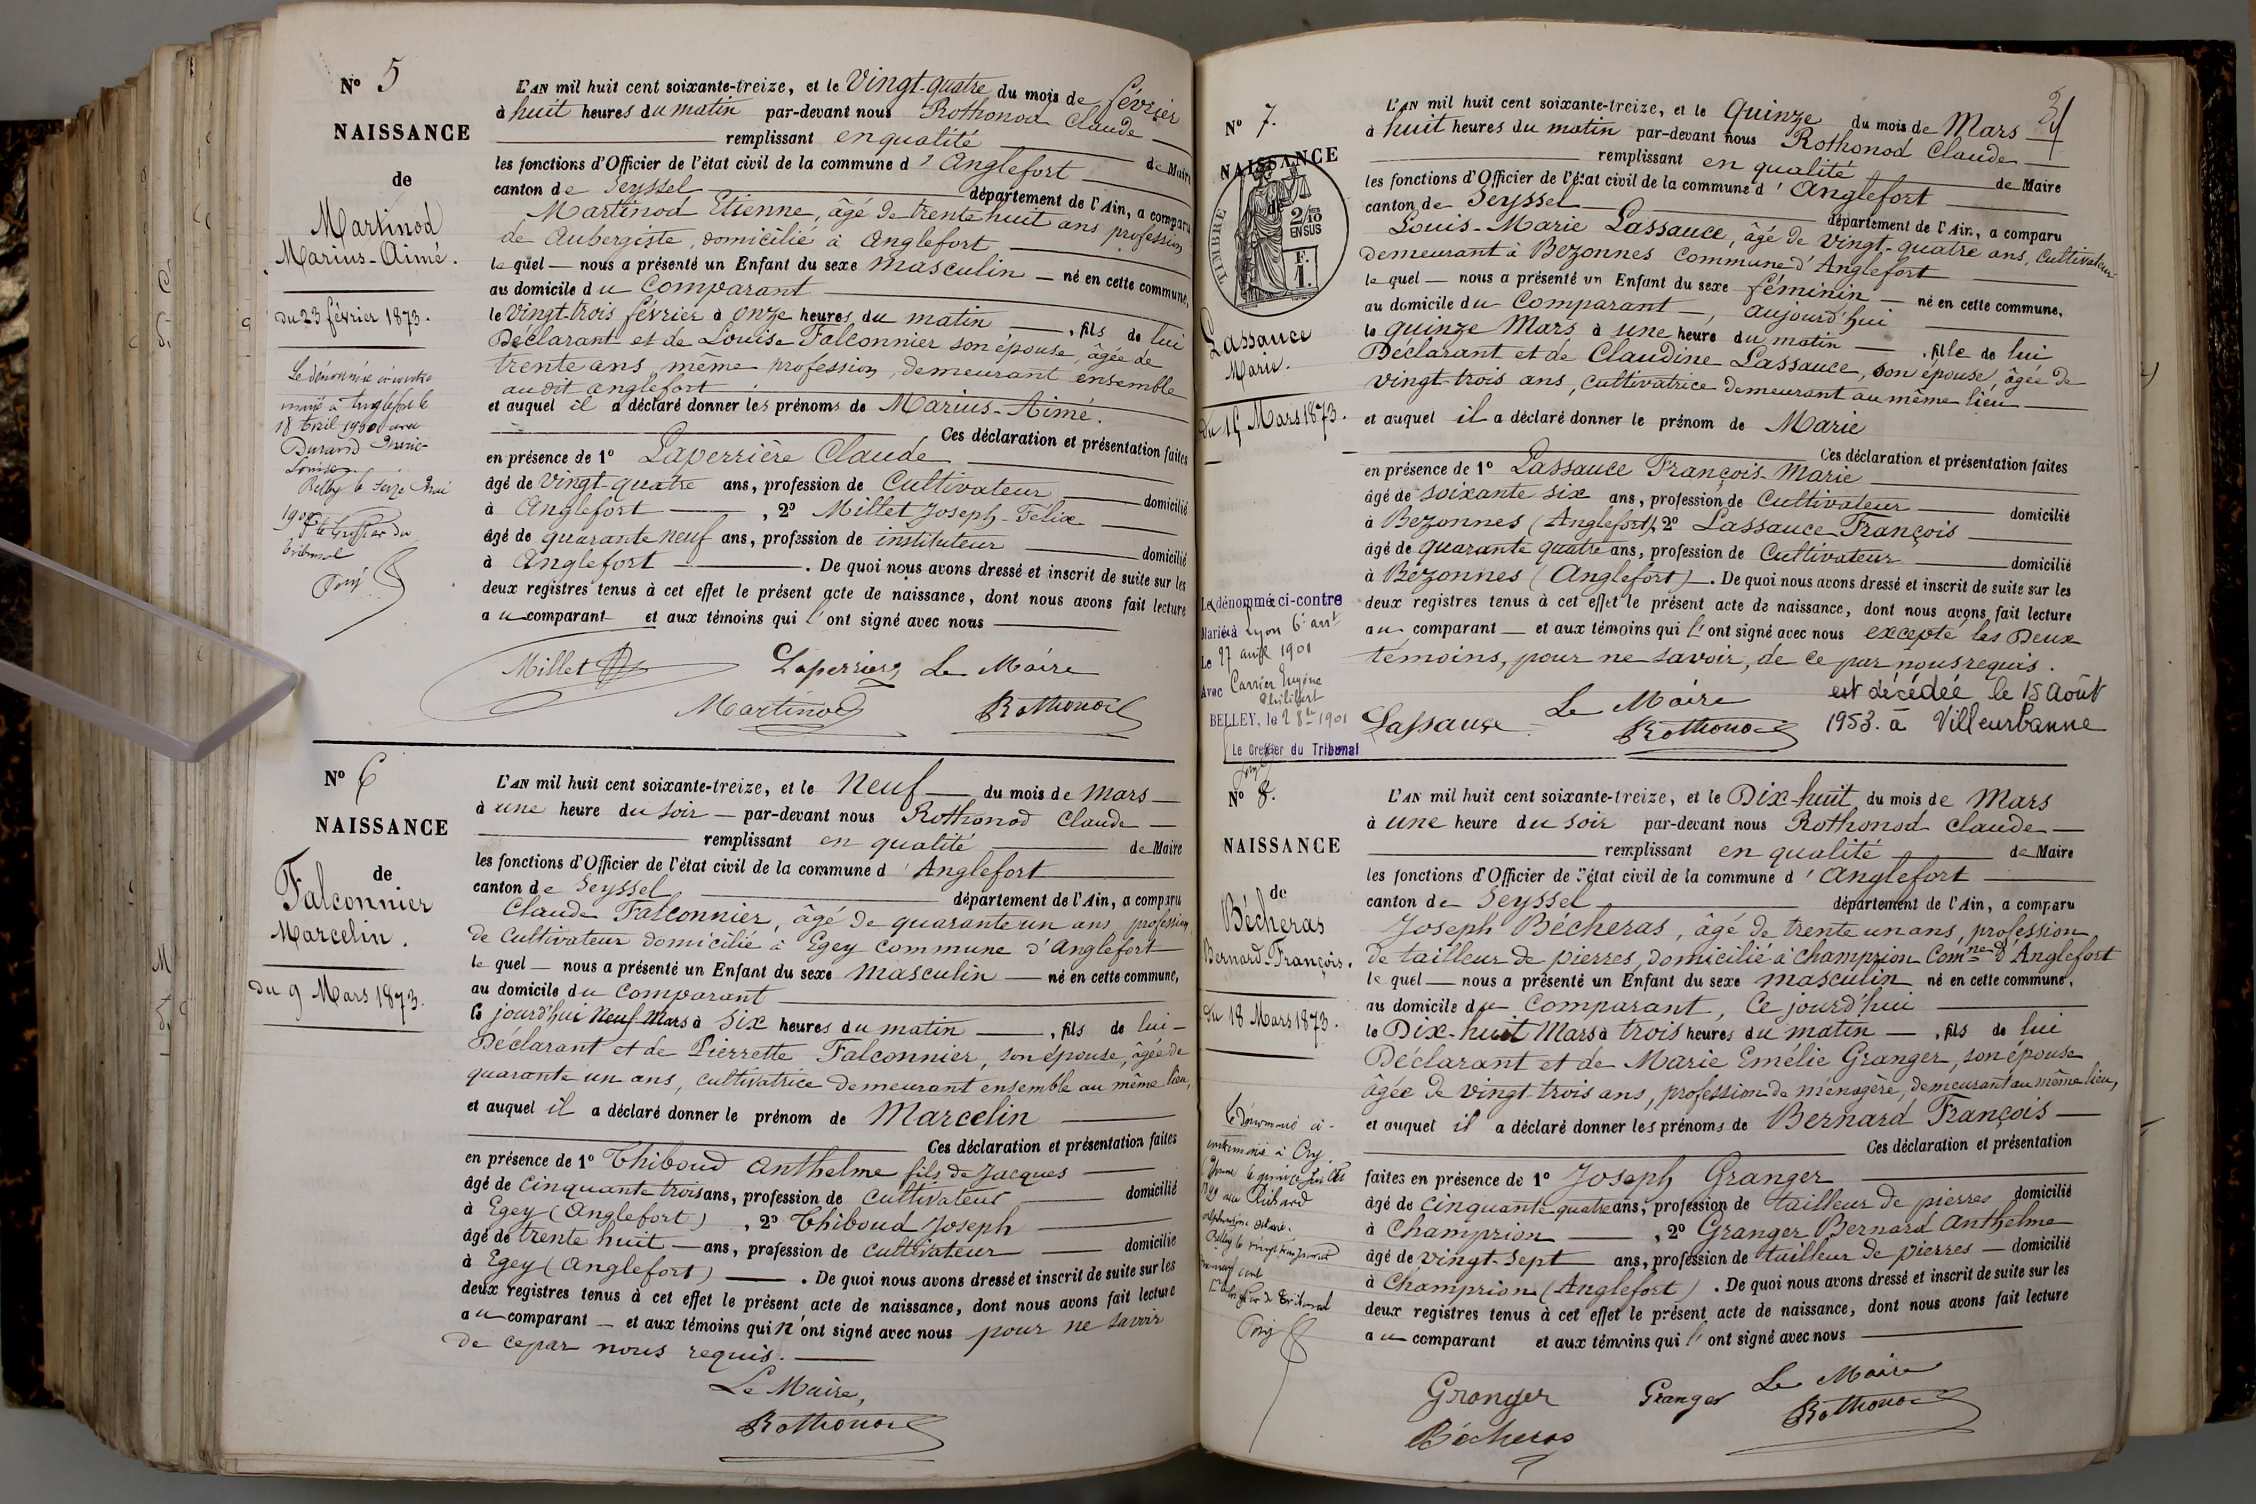 N° 5
NAISSANCE
de
Martinod
Marius-Aimé.
du 23 février 1873.
Le dénommé ci-contre
marié à Anglefort le
18 Avril 1900 avec
Durand Marie-
Louise.
Belley le seize Mai
1900
Le Greffier du
tribunal
L'AN mil huit cent soixante-treize, et le Vingt-quatre du mois de février
à huit heures du matin par-devant nous Rothonod Claude
remplissant en qualité de Maire
les fonctions d'Officier de l'état civil de la commune d'Anglefort
canton de Seyssel département de l'Ain, a comparu
Martinod Etienne, âgé de trente huit ans profession
de Aubergiste, domicilié à Anglefort
le quel — nous a présenté un Enfant du sexe masculin — né en cette commune,
au domicile du Comparant
le vingt-trois février à onze heures du matin —, fils de lui
Déclarant et de Louise Falconnier son épouse, âgée de
trente ans, même profession, demeurant ensemble
au dit anglefort
et auquel il a déclaré donner les prénoms de Marius-Aimé.
Ces déclaration et présentation faites
en présence de 1° Laperrière Claude
âgé de vingt-quatre ans, profession de Cultivateur domicilié
à Anglefort —, 2° Millet Joseph-Félix
âgé de quarante neuf ans, profession de instituteur domicilié
à Anglefort —. De quoi nous avons dressé et inscrit de suite sur les
deux registres tenus à cet effet le présent acte de naissance, dont nous avons fait lecture
au comparant et aux témoins qui l'ont signé avec nous
Millet Laperrière Le Maire
Martinod Rothonod
N° 6
NAISSANCE
de
Falconnier
Marcelin.
du 9 Mars 1873.
L'AN mil huit cent soixante-treize, et le Neuf — du mois de Mars —
à une heure du soir — par-devant nous Rothonod Claude —
remplissant en qualité de Maire
les fonctions d'Officier de l'état civil de la commune d'Anglefort
canton de Seyssel département de l'Ain, a comparu
Claude Falconnier, âgé de quarante un ans, profession
de Cultivateur domicilié à Egey commune d'Anglefort
le quel — nous a présenté un Enfant du sexe masculin — né en cette commune,
au domicile du Comparant
Ce jourd'hui Neuf Mars à six heures du matin —, fils de lui —
Déclarant et de Pierrette Falconnier, son épouse, âgée de
quarante un ans, cultivatrice demeurant ensemble au même lieu,
et auquel il a déclaré donner le prénom de Marcelin
Ces déclaration et présentation faites
en présence de 1° Thiboud Anthelme fils de Jacques
âgé de cinquante trois ans, profession de cultivateur domicilié
à Egey (Anglefort), 2° Thiboud Joseph
âgé de trente huit — ans, profession de cultivateur domicilié
à Egey (Anglefort) —. De quoi nous avons dressé et inscrit de suite sur les
deux registres tenus à cet effet le présent acte de naissance, dont nous avons fait lecture
au comparant — et aux témoins qui n'ont signé avec nous pour ne savoir
de ce par nous requis.
Le Maire,
Rothonod
N° 7.
NAISSANCE
de
TIMBRE
2/10 EN SUS
F. 1.
Lassauce
Marie.
du 15 Mars 1873.
Le dénommé ci-contre
Marié à Lyon 6e arrt
Le 27 avril 1901
Avec Carrier Eugène
Philibert
BELLEY, le 1901
Le Greffier du Tribunal
L'AN mil huit cent soixante-treize, et le Quinze du mois de Mars
à huit heures du matin par-devant nous Rothonod Claude
remplissant en qualité de Maire
les fonctions d'Officier de l'état civil de la commune d'Anglefort
canton de Seyssel département de l'Ain, a comparu
Louis-Marie Lassauce, âgé de vingt-quatre ans, cultivateur
demeurant à Bezonnes commune d'Anglefort
le quel — nous a présenté un Enfant du sexe féminin — né en cette commune,
au domicile du Comparant —, aujourd'hui
le quinze Mars à une heure du matin —, fille de lui
Déclarant et de Claudine Lassauce, son épouse, âgée de
vingt-trois ans, cultivatrice demeurant au même lieu
et auquel il a déclaré donner le prénom de Marie
Ces déclaration et présentation faites
en présence de 1° Lassauce François-Marie
âgé de soixante six ans, profession de cultivateur domicilié
à Bezonnes (Anglefort), 2° Lassauce François
âgé de quarante quatre ans, profession de Cultivateur domicilié
à Bezonnes (Anglefort) —. De quoi nous avons dressé et inscrit de suite sur les
deux registres tenus à cet effet le présent acte de naissance, dont nous avons fait lecture
au comparant — et aux témoins qui l'ont signé avec nous excepté les Deux
témoins, pour ne savoir, de ce par nous requis.
Lassauce Le Maire
Rothonod
est décédée le 15 Août
1953. à Villeurbanne
N° 8.
NAISSANCE
de
Bécheras
Bernard-François.
du 18 Mars 1873.
Le dénommé ci-
Le Greffier du Tribunal
L'AN mil huit cent soixante-treize, et le Dix-huit du mois de Mars
à une heure du soir par-devant nous Rothonod Claude —
remplissant en qualité de Maire
les fonctions d'Officier de l'état civil de la commune d'Anglefort
canton de Seyssel département de l'Ain, a comparu
Joseph Bécheras, âgé de trente un ans, profession
de tailleur de pierres, domicilié à Champrion Comne d'Anglefort
le quel — nous a présenté un Enfant du sexe masculin né en cette commune,
au domicile du Comparant, Ce jourd'hui
le Dix-huit Mars à trois heures du matin —, fils de lui
Déclarant et de Marie Emélie Granger, son épouse
âgée de vingt-trois ans, profession de ménagère, demeurant au même lieu,
et auquel il a déclaré donner les prénoms de Bernard François —
Ces déclaration et présentation
faites en présence de 1° Joseph Granger
âgé de cinquante-quatre ans, profession de tailleur de pierres domicilié
à Champrion —, 2° Granger Bernard Anthelme
âgé de vingt-sept ans, profession de tailleur de pierres — domicilié
à Champrion (Anglefort). De quoi nous avons dressé et inscrit de suite sur les
deux registres tenus à cet effet le présent acte de naissance, dont nous avons fait lecture
au comparant et aux témoins qui l'ont signé avec nous
Granger Granger Le Maire
Bécheras Rothonod